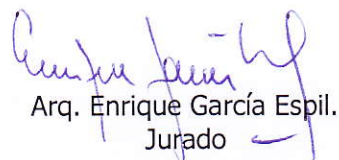 Arq. Enrique García Espil.
Jurado